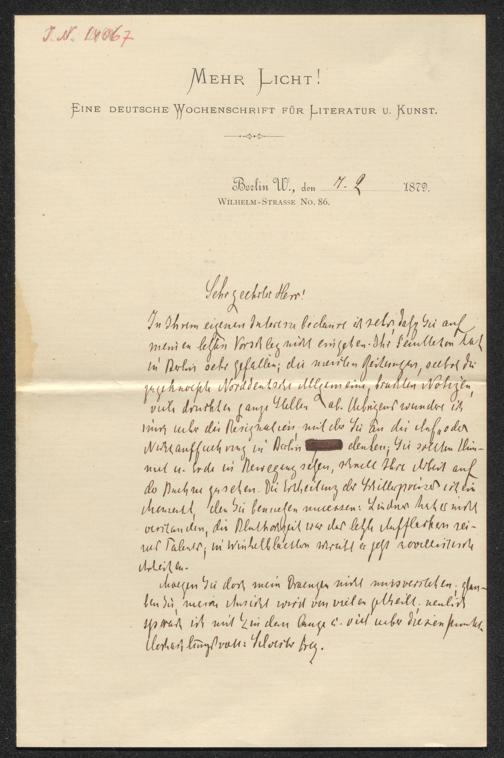 J. N. 14067
MEHR LICHT!
EINE DEUTSCHE WOCHENSCHRIFT FÜR LITERATUR U. KUNST.
Berlin W., den 7. 2 1879.
WILHELM-STRASSE No. 86.
Sehr geehrter Herr!
In Ihrem eigenen Interesse bedaure ich sehr, daß Sie auf
meinen letzten Vorschlag nicht eingehen. Ihr Feuilleton hat
in Berlin sehr gefallen; die meisten Zeitungen, selbst die
zugeknöpfte Norddeutsche Allgemeine, brachten Notizen,
viele druckten ganze Stellen ab. Uebrigens wundere ich
mich ueber die Resignation, mit der Sie an die Auf- oder
Nichtauffuehrung in Berlin denken; Sie sollten Him-
mel u. Erde in Bewegung setzen, damit Ihre Arbeit auf
der Buehne gesehen. Die Ertheilung des Schillerpreises ist ein
Moment, den Sie benuetzen muessen: Lindner hat es nicht
verstanden, die Bluthochzeit war das letzte Aufflackern sei-
nes Talents; in Winkelblaettern schreibt er jetzt novellistische
Arbeiten.
Moegen Sie doch mein Draengen nicht missverstehen; glau-
ben Sie, meine Ansicht wird von vielen getheilt, neulich
sprach ich mit Lindau lange u. viel ueber diesen Punkt.
Hochachtungsvoll: Silvester Frey.